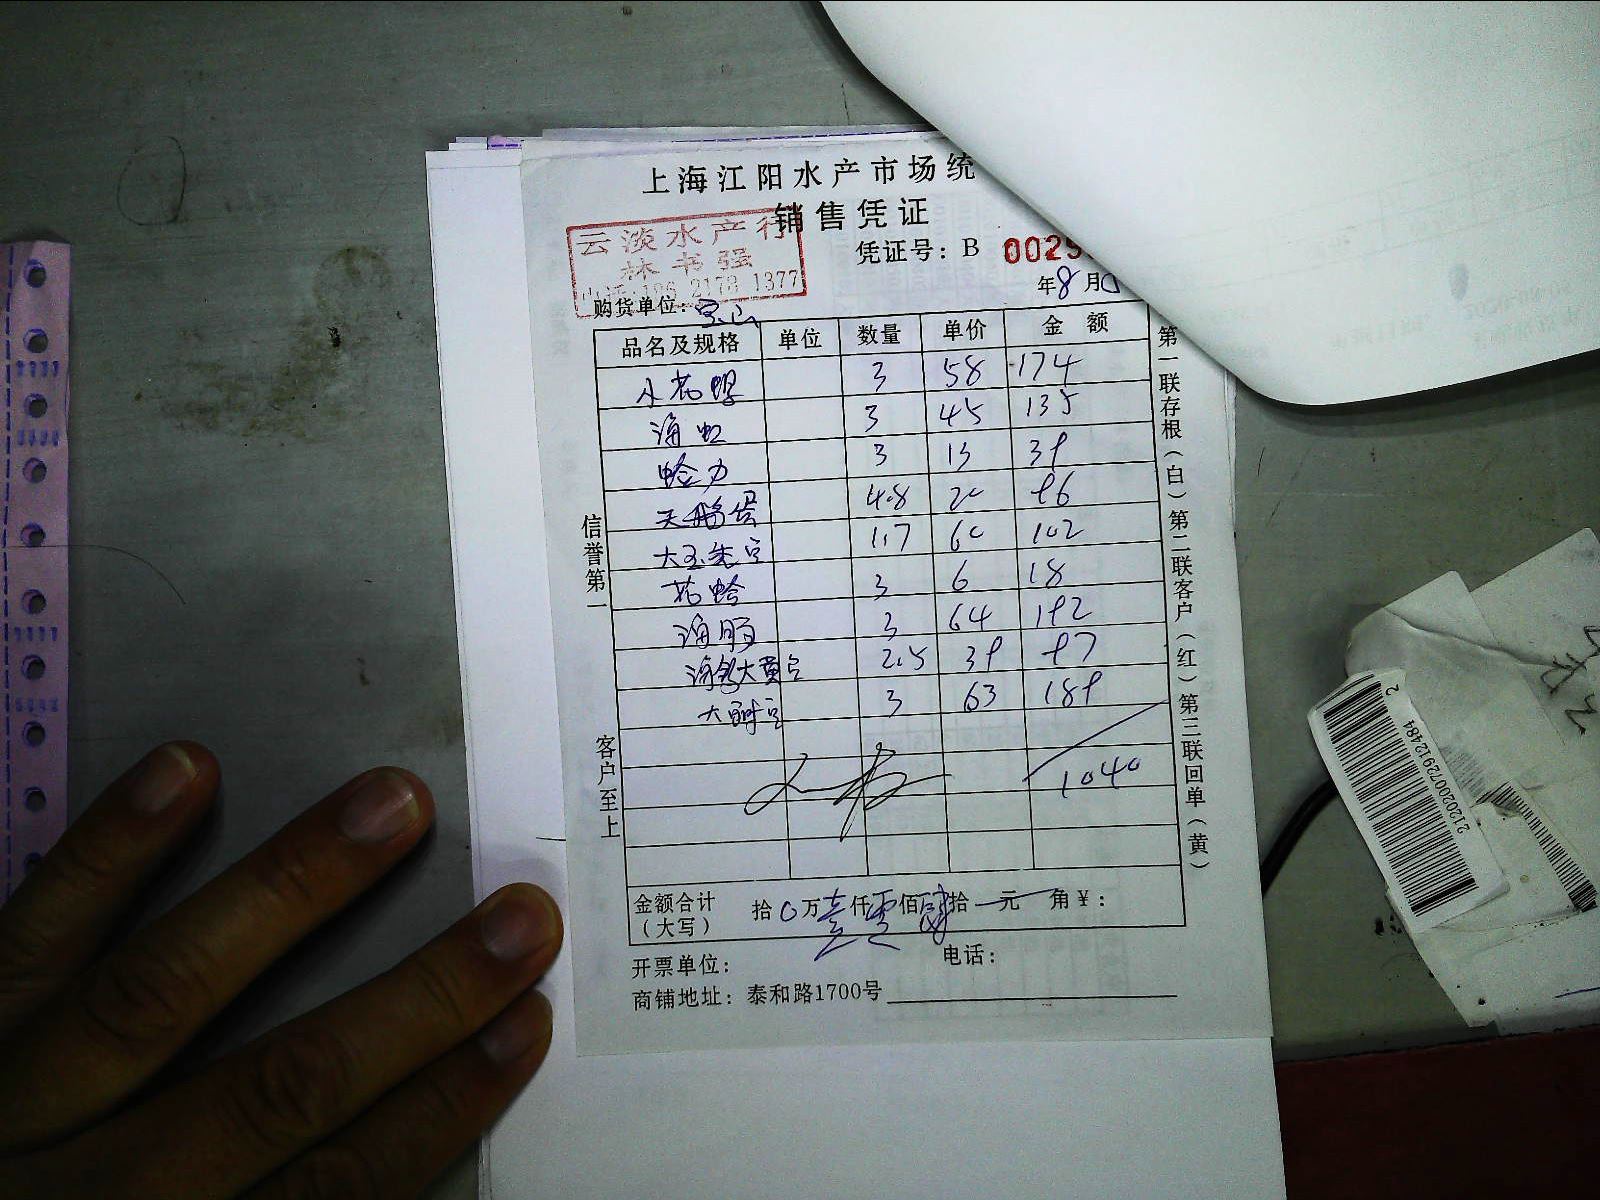 上海江阳水产市场统
销售凭证
云淡水产行
林书强
2173 1377
凭证号：B 0029
年8月
购货单位：宝山
品名及规格 单位 数量 单价 金额
小花螺 3 58 174
海虹 3 45 135
蛤力 3 13 39
天鹅蛋 4.8 20 96
大玉 1.7 60 102
花蛤 3 6 18
海肠 3 64 192
大黄 2.5 39 97
大 3 63 189
1040
金额合计（大写） 拾0万壹仟零佰肆拾一元 角¥：
开票单位： 电话：
商铺地址：泰和路1700号
信誉第一
客户至上
第一联存根（白）第二联客户（红）第三联回单（黄）
212020072912484
2